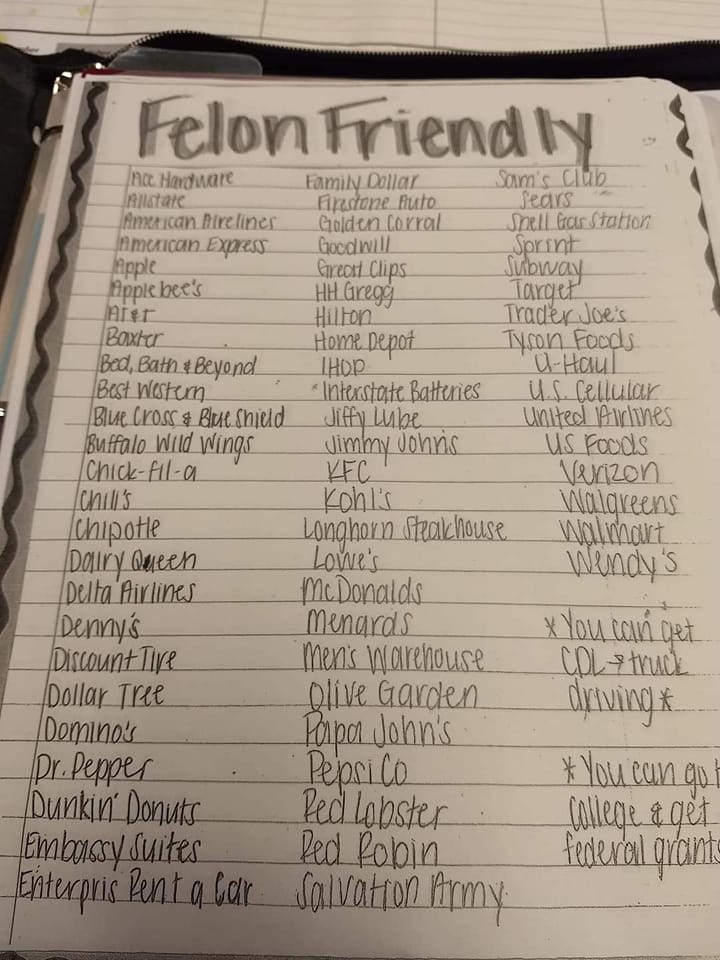 Felon Friendly
Ace Hardware
Allstate
American Airelines
American Express
Apple
Applebee's
AT&T
Baxter
Bed, Bath & Beyond
Best Western
Blue Cross & Blue Shield
Buffalo Wild Wings
Chick-fil-a
Chili's
Chipotle
Dairy Queen
Delta Airlines
Denny's
Discount Tire
Dollar Tree
Domino's
Dr. Pepper
Dunkin' Donuts
Embassy Suites
Enterpris Rent a Car
Family Dollar
Firestone Auto
Golden Corral
Goodwill
Great Clips
HH Gregg
Hilton
Home Depot
IHOP
Interstate Batteries
Jiffy Lube
Jimmy John's
KFC
Kohl's
Longhorn Steakhouse
Lowe's
McDonalds
Menards
Men's Warehouse
Olive Garden
Papa John's
PepsiCo
Red Lobster
Red Robin
Salvation Army
Sam's Club
Sears
Shell Gas Station
Sprint
Subway
Target
Trader Joe's
Tyson Foods
U-Haul
U.S. Cellular
United Airlines
US Foods
Verizon
Walgreens
Walmart
Wendy's
* You can get
CDL → truck
driving *
* You can go
college & get
federal grants